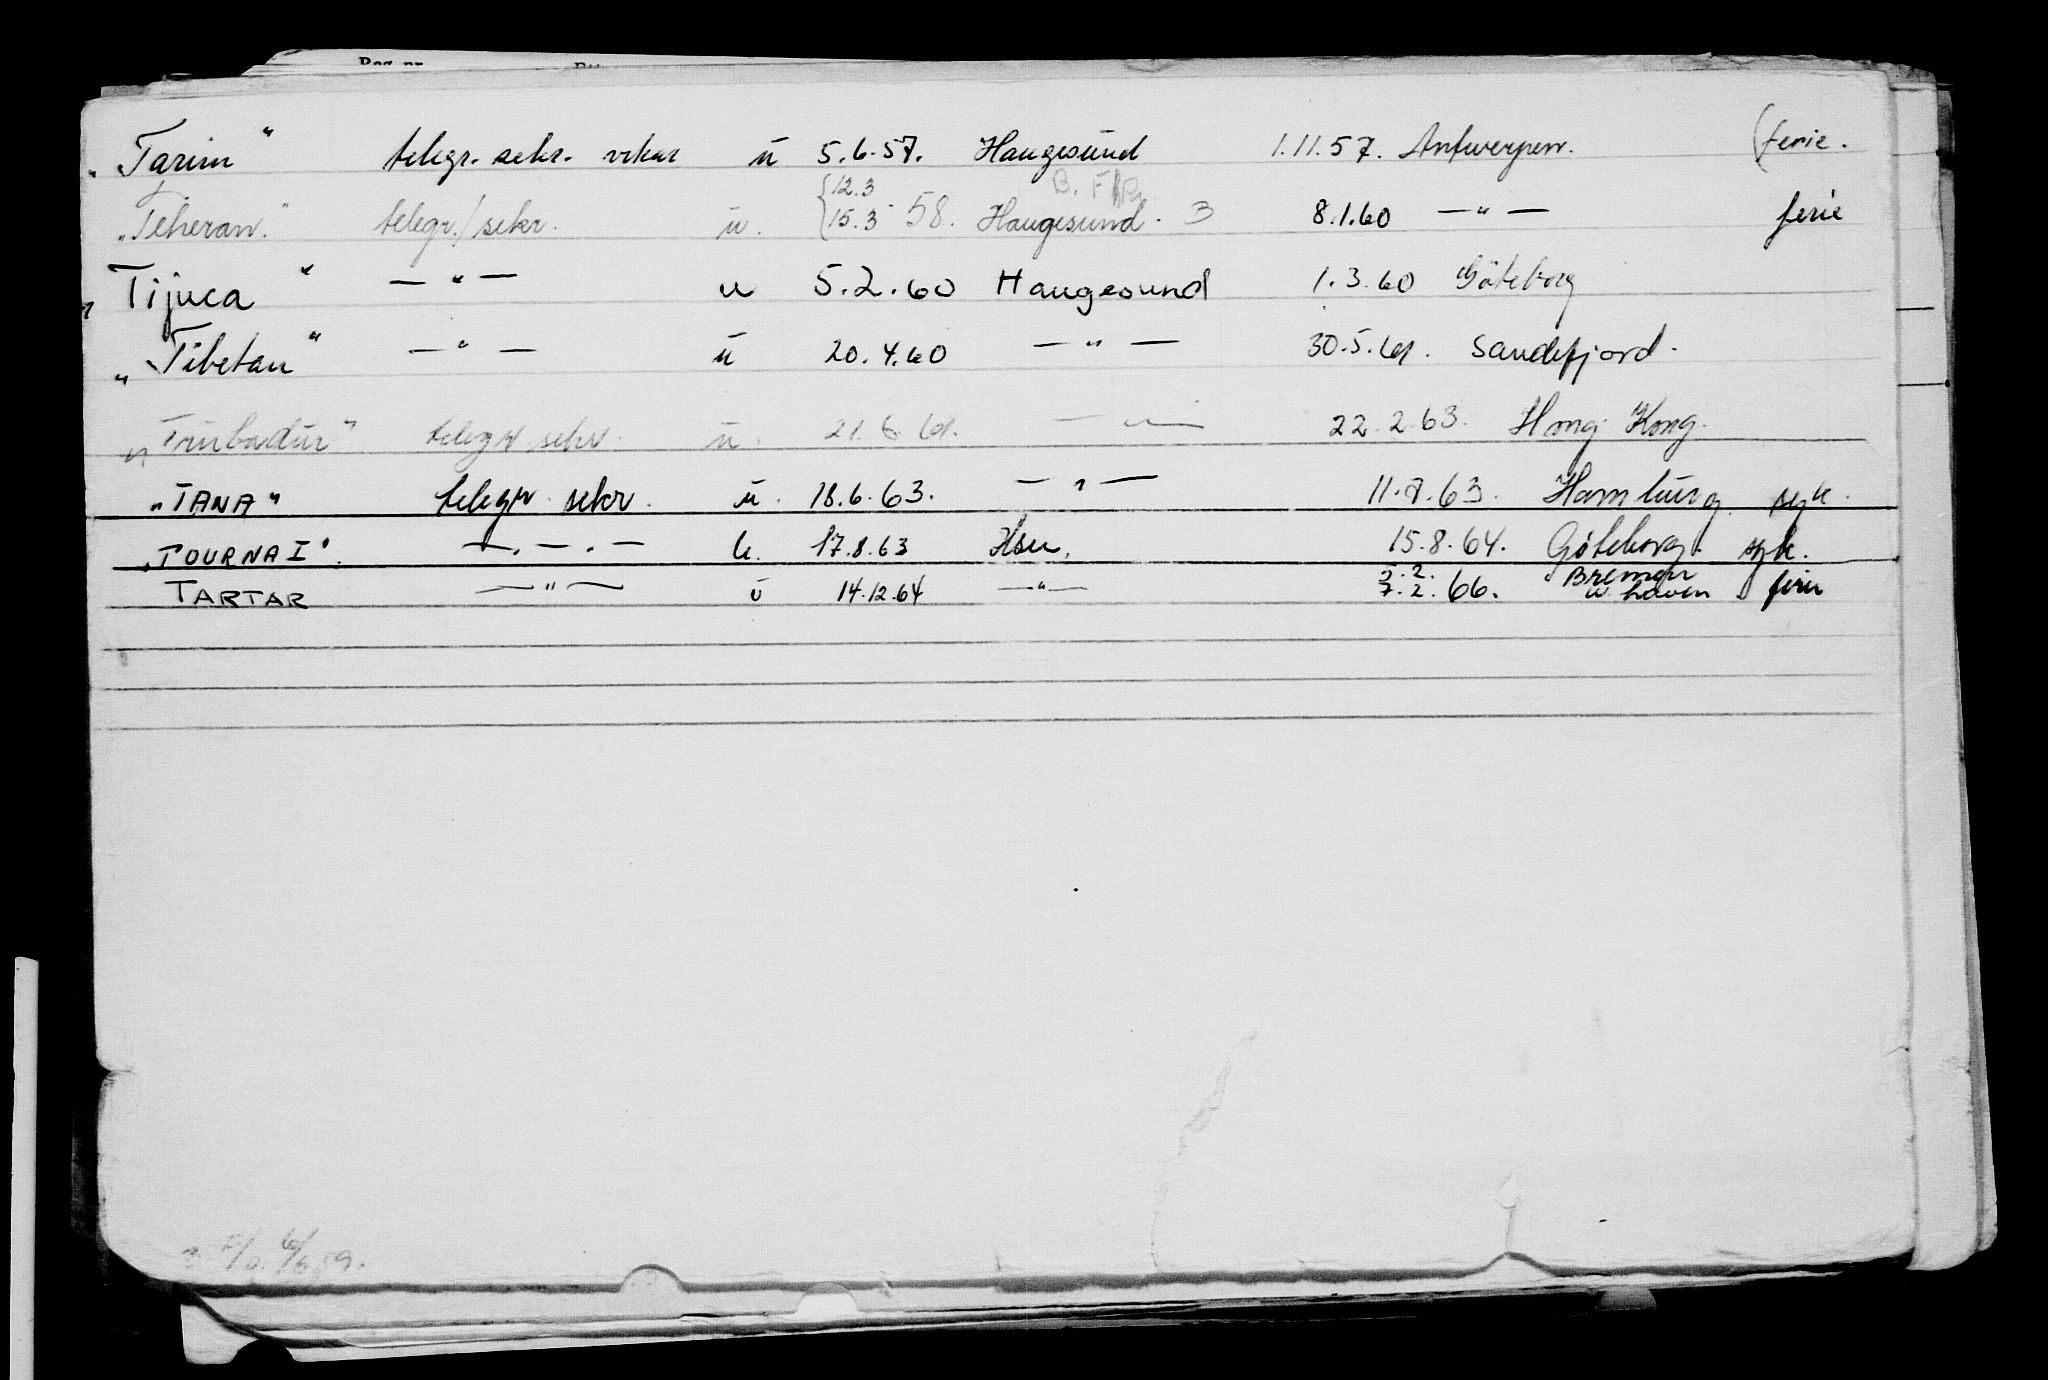 „Tarim“ telegr. sekr. vikar u 5.6.57. Haugesund 1.11.57. Antwerpen. (ferie.
12.3 B.
„Teheran.“ telegr./sekr. u. 15.3 58. Haugesund. 3 8.1.60 —"— ferie
„Tijuca“ —"— u 5.2.60 Haugesund 1.3.60 Göteborg
„Tibetan“ —"— u 20.4.60 —"— 30.5.61. Sandefjord.
„Trubadur“ telegr. sekr. u. 21.6.61. —"— 22.2.63. Hong Kong.
„TANA“ telegr. sekr. u. 18.6.63. —"— 11.7.63. Hamburg syk.
„TOURNAI“. —"— u. 17.8.63 Hsu. 15.8.64. Göteborg. syk.
TARTAR —"— u 14.12.64 —"— 7.2.66. Bremer haven ferie